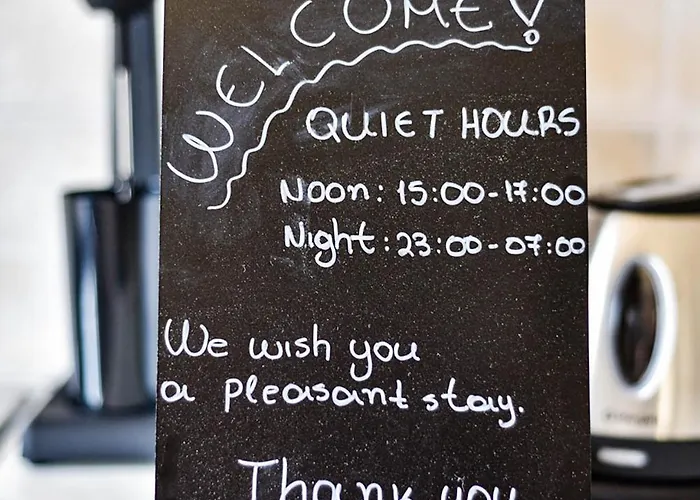 WELCOME!
QUIET HOURS
Noon: 15:00-17:00
Night: 23:00-07:00
We wish you
a pleasant stay.
Thank you